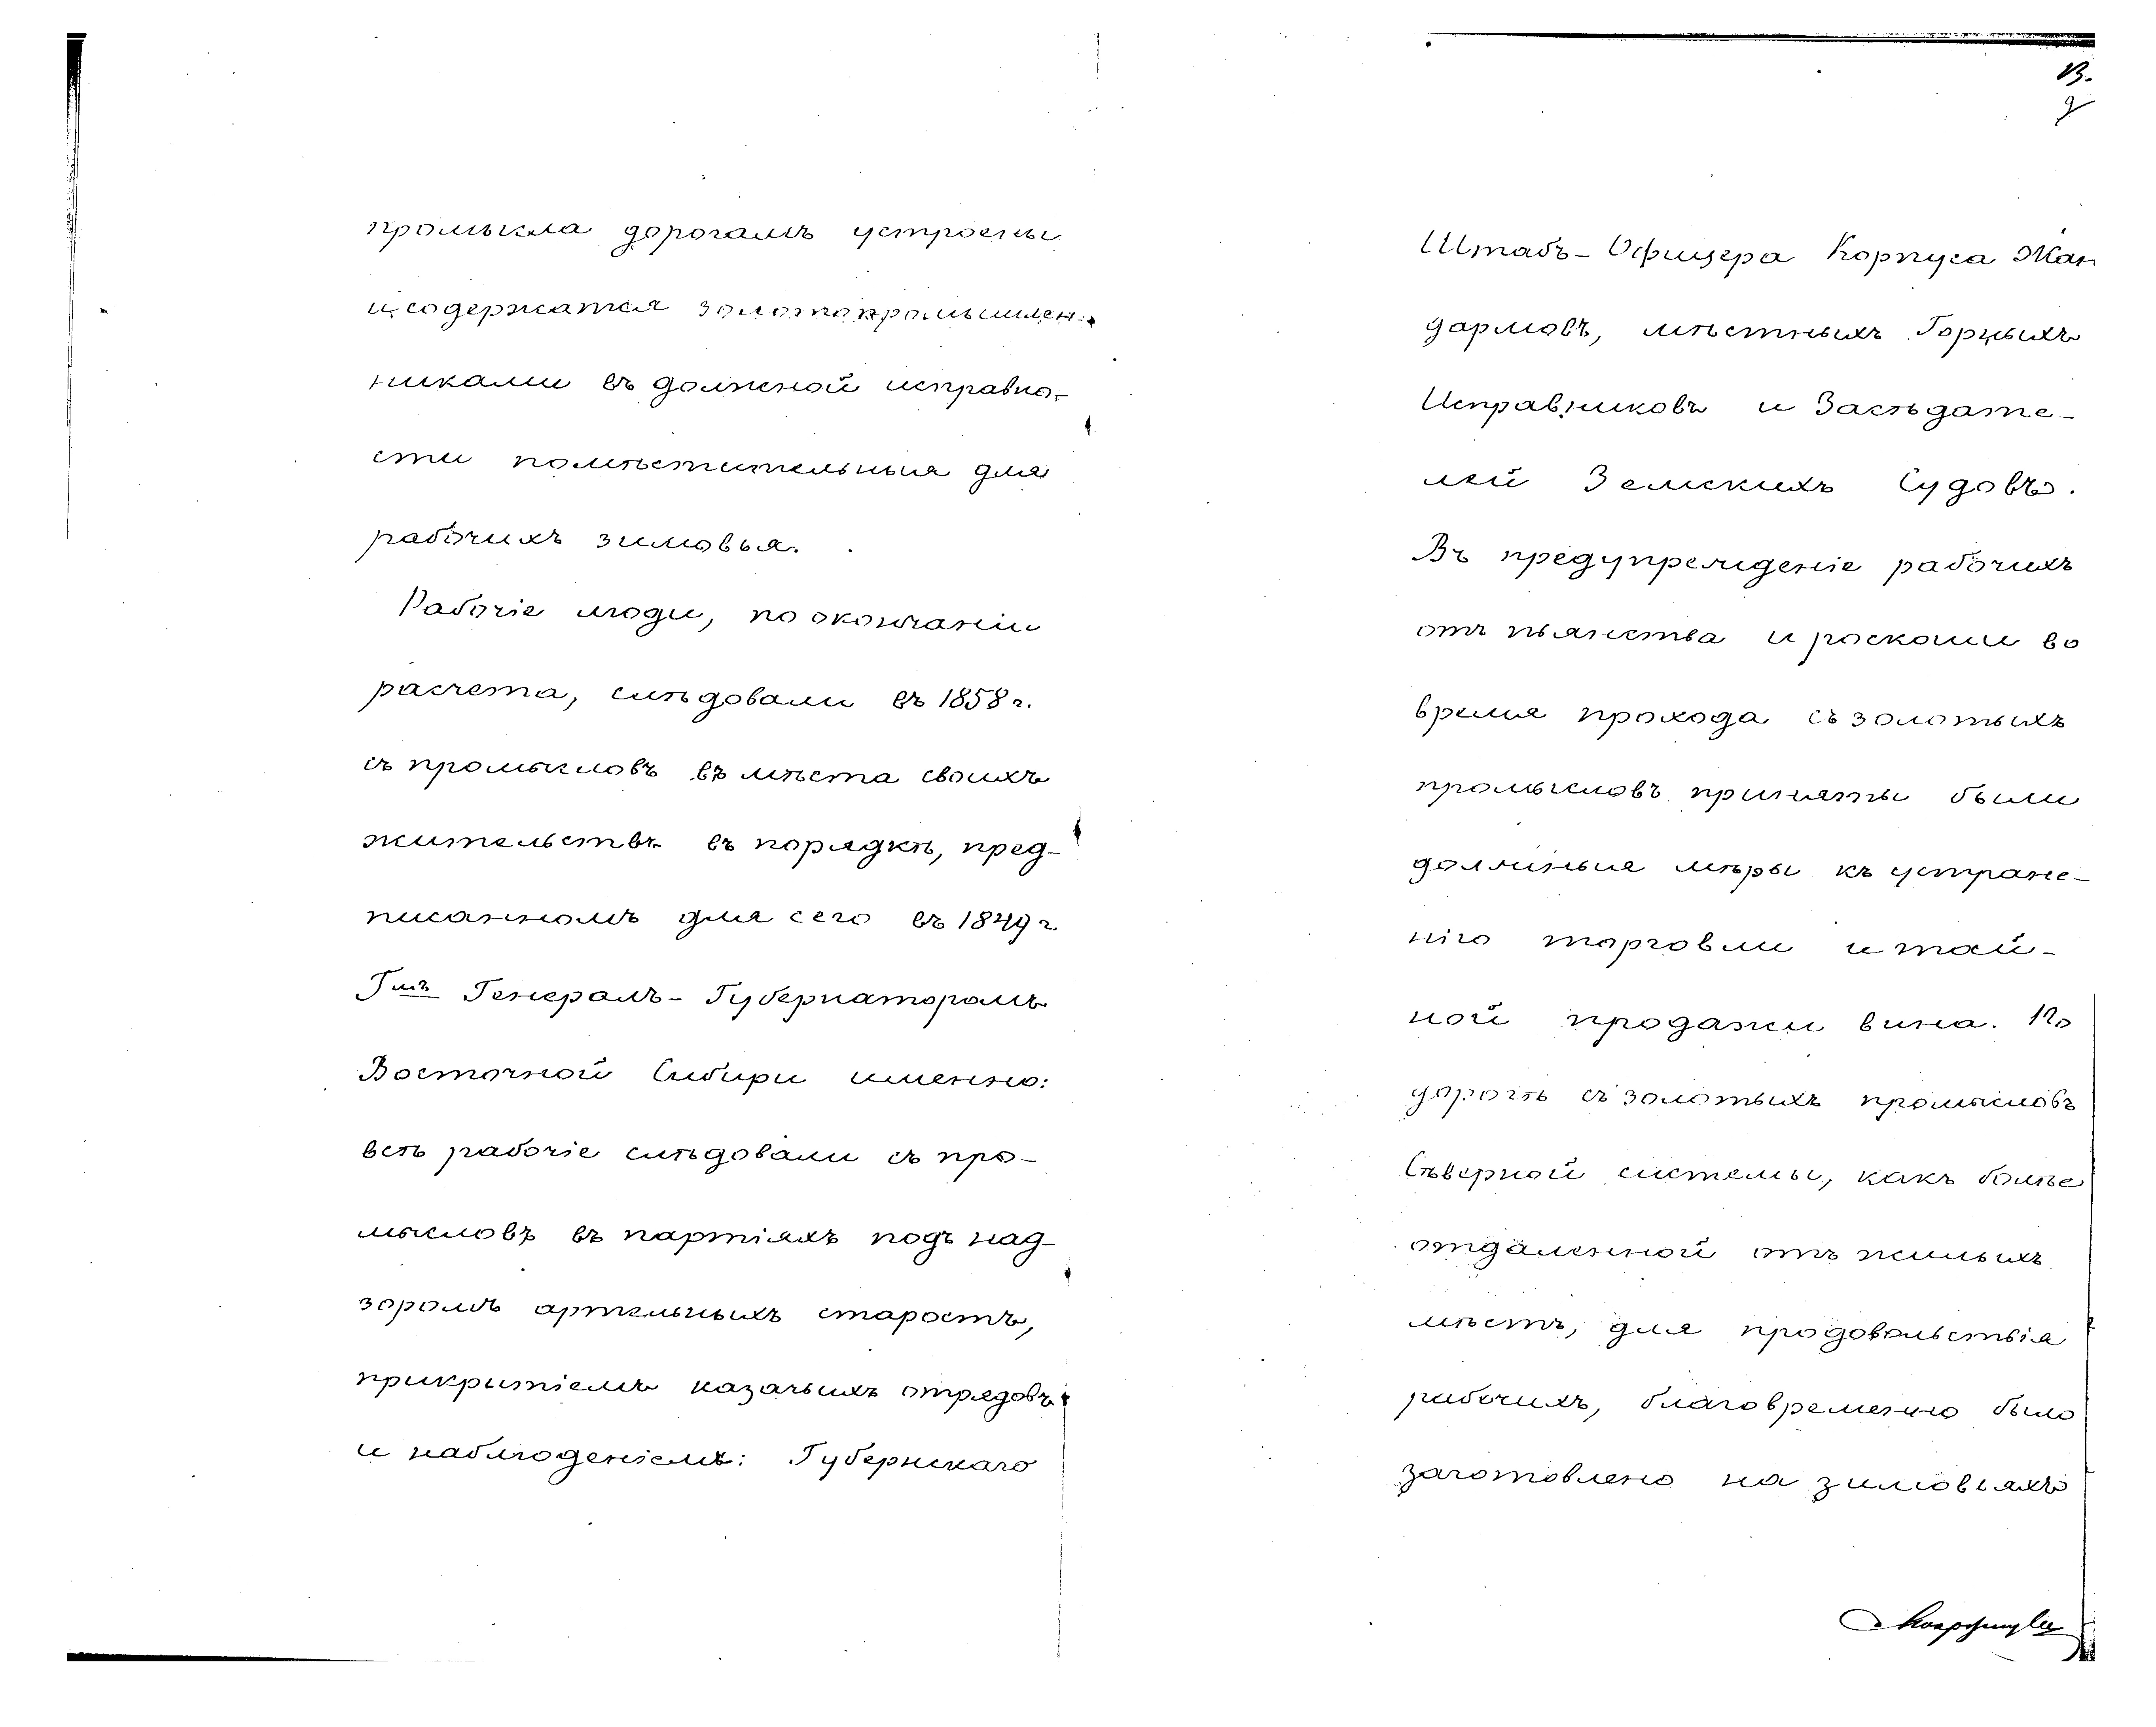 промысла дорогамъ устроены
и содержатся золотопромышлен-
никами въ должной исправно-
сти помѣстительныя для
рабочихъ зимовья.
Рабочіе люди, по окончаніи
расчета, слѣдовали въ 1858 г.
съ промысловъ въ мѣста своихъ
жительствъ въ порядкѣ, пред-
писанномъ для сего въ 1849 г.
Гмъ Генералъ-Губернаторомъ
Восточной Сибири именно:
всѣ рабочіе слѣдовали съ про-
мысловъ въ партіяхъ подъ над-
зоромъ артельныхъ старостъ,
прикрытіемъ казачьихъ отрядовъ
и наблюденіемъ: Губернскаго
Штабъ-Офицера Корпуса Жан
дармовъ, мѣстныхъ Горныхъ
Исправниковъ и Засѣдате-
лей Земскихъ Судовъ.
Въ предупрежденіе рабочихъ
отъ пьянства и роскоши во
время прохода съ золотыхъ
промысловъ приняты были
должныя мѣры къ устране-
нію торговли и тай-
ной продажи вина. По
дорогѣ съ золотыхъ промысловъ
Сѣверной системы, какъ болѣе
отдаленной отъ жилыхъ
мѣстъ, для продовольствія
рабочихъ, благовременно было
заготовлено на зимовьяхъ